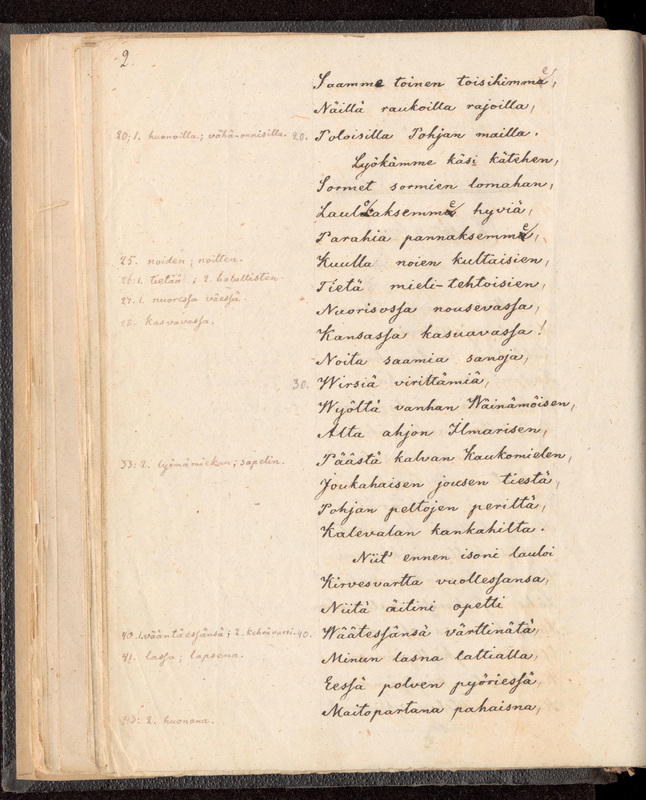 2
Saamme toinen toisihimme,
Näillä raukoilla rajoilla,
20; 1. huonoilla; vähä-onnisilla. 20. Poloisilla Pohjan mailla.
Lyökämme käsi kätehen,
Sormet sormien lomahan,
Lauloaksemme hyviä,
Parahia pannaksemme,
25. noiden; noitten. Kuulla noien kultaisien,
26: 1. tietää; 2. halullisten. Tietä mieli-tehtoisien,
27. 1. nuoressa väessä. Nuorisossa nousevassa,
28. kasvavassa. Kansassa kasuavassa!
Noita saamia sanoja,
30. Wirsiä virittämiä,
Wyöltä vanhan Wäinämöisen,
Alta ahjon Ilmarisen,
33: 2. lyömämiekan; sapelin. Päästä kalvan Kaukomielen,
Joukahaisen jousen tiestä,
Pohjan peltojen periltä,
Kalevalan kankahilta.
Niit' ennen isoni lauloi
Kirvesvartta vuollessansa,
Niitä äitini opetti
40. 1. vääntäessänsä; 2. kehrävarri. 40. Wäätessänsä värttinätä,
41. lassa; lapsena. Minun lasna lattialla,
Eessä polven pyöriessä,
43: 2. huonona. Maitopartana pahaisna,